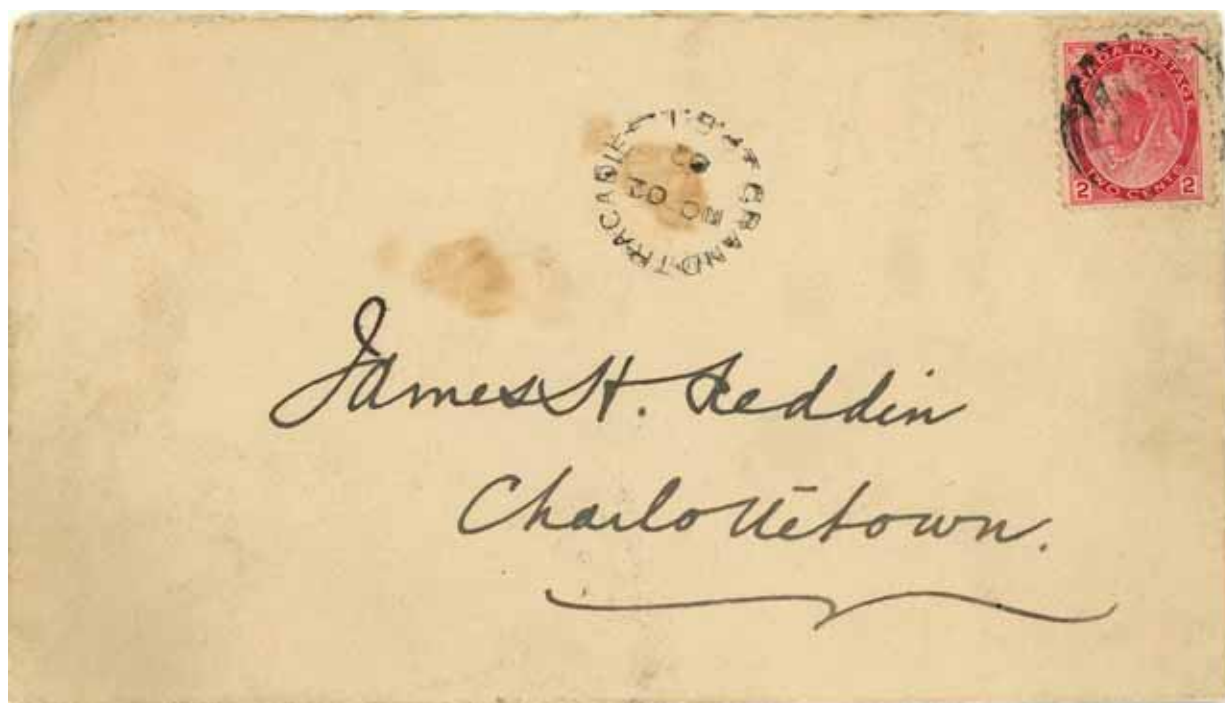 CANADA POSTAGE
2 TWO CENTS 2
GRAND TRACADIE
02
James H. Reddin
Charlottetown.